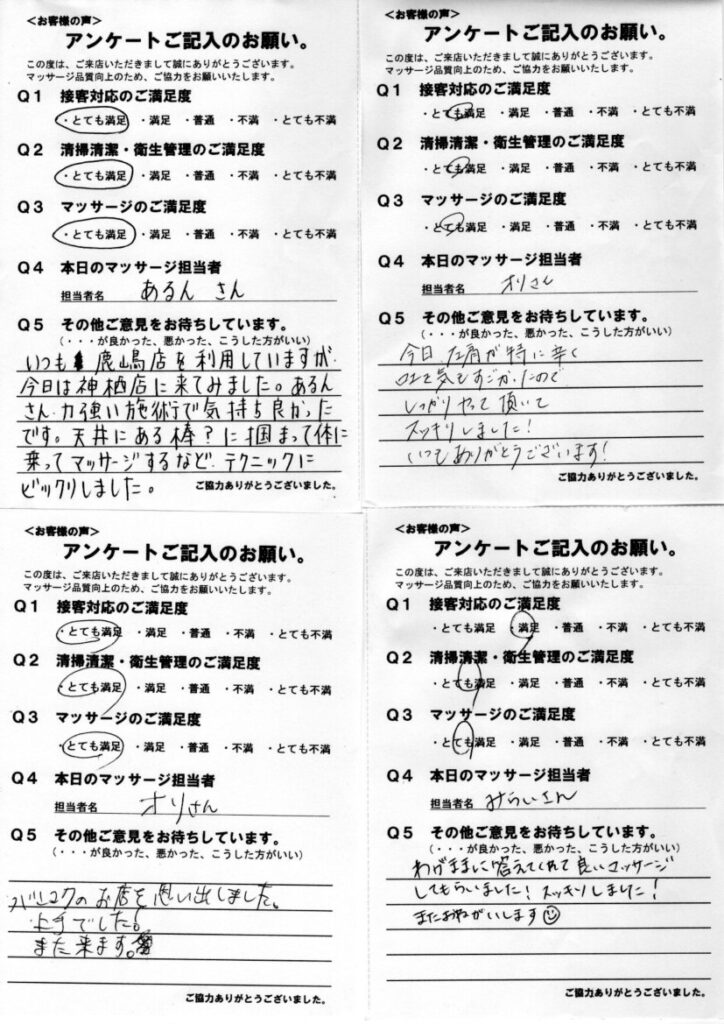 <お客様の声>
アンケートご記入のお願い。
この度は、ご来店いただきまして誠にありがとうございます。
マッサージ品質向上のため、ご協力をお願いいたします。
Q1 接客対応のご満足度
・とても満足 ・満足 ・普通 ・不満 ・とても不満
Q2 清掃清潔・衛生管理のご満足度
・とても満足 ・満足 ・普通 ・不満 ・とても不満
Q3 マッサージのご満足度
・とても満足 ・満足 ・普通 ・不満 ・とても不満
Q4 本日のマッサージ担当者
担当者名 あるん さん
Q5 その他ご意見をお待ちしています。
(・・・が良かった、悪かった、こうした方がいい)
いつも 鹿嶋店を利用していますが、
今日は神栖店に来てみました。あるん
さん、力強い施術で気持ち良かった
です。天井にある棒?に掴まって体に
乗ってマッサージするなど、テクニックに
ビックリしました。
ご協力ありがとうございました。
<お客様の声>
アンケートご記入のお願い。
この度は、ご来店いただきまして誠にありがとうございます。
マッサージ品質向上のため、ご協力をお願いいたします。
Q1 接客対応のご満足度
・とても満足 ・満足 ・普通 ・不満 ・とても不満
Q2 清掃清潔・衛生管理のご満足度
・とても満足 ・満足 ・普通 ・不満 ・とても不満
Q3 マッサージのご満足度
・とても満足 ・満足 ・普通 ・不満 ・とても不満
Q4 本日のマッサージ担当者
担当者名 オリさん
Q5 その他ご意見をお待ちしています。
(・・・が良かった、悪かった、こうした方がいい)
今日、左肩が特に辛く
しっかりやって頂いて
スッキリしました!
いつもありがとうございます!
ご協力ありがとうございました。
<お客様の声>
アンケートご記入のお願い。
この度は、ご来店いただきまして誠にありがとうございます。
マッサージ品質向上のため、ご協力をお願いいたします。
Q1 接客対応のご満足度
・とても満足 ・満足 ・普通 ・不満 ・とても不満
Q2 清掃清潔・衛生管理のご満足度
・とても満足 ・満足 ・普通 ・不満 ・とても不満
Q3 マッサージのご満足度
・とても満足 ・満足 ・普通 ・不満 ・とても不満
Q4 本日のマッサージ担当者
担当者名 オリさん
Q5 その他ご意見をお待ちしています。
(・・・が良かった、悪かった、こうした方がいい)
バンコクのお店を思い出しました。
上手でした!
また来ます。
ご協力ありがとうございました。
<お客様の声>
アンケートご記入のお願い。
この度は、ご来店いただきまして誠にありがとうございます。
マッサージ品質向上のため、ご協力をお願いいたします。
Q1 接客対応のご満足度
・とても満足 ・満足 ・普通 ・不満 ・とても不満
Q2 清掃清潔・衛生管理のご満足度
・とても満足 ・満足 ・普通 ・不満 ・とても不満
Q3 マッサージのご満足度
・とても満足 ・満足 ・普通 ・不満 ・とても不満
Q4 本日のマッサージ担当者
担当者名 みらいさん
Q5 その他ご意見をお待ちしています。
(・・・が良かった、悪かった、こうした方がいい)
わがままに答えてくれて良いマッサージ
してもらいました! スッキリしました!
またおねがいします☺
ご協力ありがとうございました。